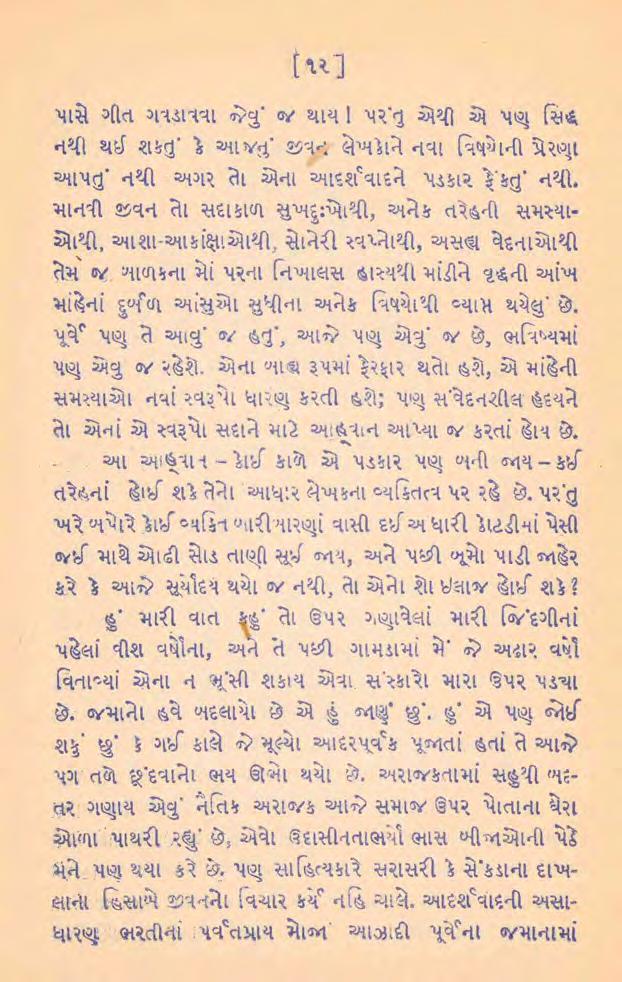 [ ૧૨ ]
પાસે ગીત ગવડાવવા જેવું જ થાય ! પરંતુ એથી એ પણ સિદ્ધ
નથી થઈ શકતું કે આજનું જીવન લેખકોને નવા વિષયોની પ્રેરણા
આપતું નથી અગર તો એના આદર્શવાદને પડકાર ફેંકતું નથી.
માનવી જીવન તો સદાકાળ સુખદુઃખોથી, અનેક તરેહની સમસ્યા-
ઓથી, આશા-આકાંક્ષાઓથી, સોનેરી સ્વપ્નોથી, અસહ્ય વેદનાઓથી
તેમ જ બાળકના મોં પરના નિખાલસ હાસ્યથી માંડીને વૃદ્ધની આંખ
માંહેનાં દુર્બળ આંસુઓ સુધીના અનેક વિષયોથી વ્યાપ્ત થયેલું છે.
પૂર્વે પણ તે આવું જ હતું, આજે પણ એવું જ છે, ભવિષ્યમાં
પણ એવુ જ રહેશે. એના બાહ્ય રૂપમાં ફેરફાર થતો હશે, એ માંહેની
સમસ્યાઓ નવાં સ્વરૂપો ધારણ કરતી હશે; પણ સંવેદનશીલ હૃદયને
તો એનાં એ સ્વરૂપો સદાને માટે આહ્‌વાન આપ્યા જ કરતાં હોય છે.
આ આહ્‌વાન – કોઈ કાળે એ પડકાર પણ બની જાય – કઈ
તરેહનાં હોઈ શકે તેનો આધાર લેખકના વ્યક્તિત્વ પર રહે છે. પરંતુ
ખરે બપોરે કોઈ વ્યક્તિ બારીબારણાં વાસી દઈ અંધારી કોટડીમાં પેસી
જઈ માથે ઓઢી સોડ તાણી સૂઈ જાય, અને પછી બૂમો પાડી જાહેર
કરે કે આજે સૂર્યોદય થયો જ નથી, તો એનો શો ઇલાજ હોઈ શકે?
હું મારી વાત કહું તો ઉપર ગણાવેલાં મારી જિંદગીનાં
પહેલાં વીશ વર્ષોના, અને તે પછી ગામડામાં મેં જે અઢાર વર્ષો
વિતાવ્યાં એના ન ભૂંસી શકાય એવા સંસ્કારો મારા ઉપર પડ્યા
છે. જમાનો હવે બદલાયો છે એ હું જાણું છું. હું એ પણ જોઈ
શકું છું કે ગઈ કાલે જે મૂલ્યો આદરપૂર્વક પૂજાતાં હતાં તે આજે
પગ તળે છૂંદવાનો ભય ઊભો થયો છે. અરાજકતામાં સહુથી બદ-
તર ગણાય એવું નૈતિક અરાજક આજે સમાજ ઉપર પોતાના ઘેરા
ઓળા પાથરી રહ્યું છે, એવો ઉદાસીનતાભર્યો ભાસ બીજાઓની પેઠે
મને પણ થયા કરે છે. પણ સાહિત્યકારે સરાસરી કે સેંકડાના દાખ-
લાના હિસાબે જીવનનો વિચાર કર્યે નહિ ચાલે. આદર્શવાદની અસા-
ધારણ ભરતીનાં પર્વતપ્રાય મોજાં આઝાદી પૂર્વેના જમાનામાં